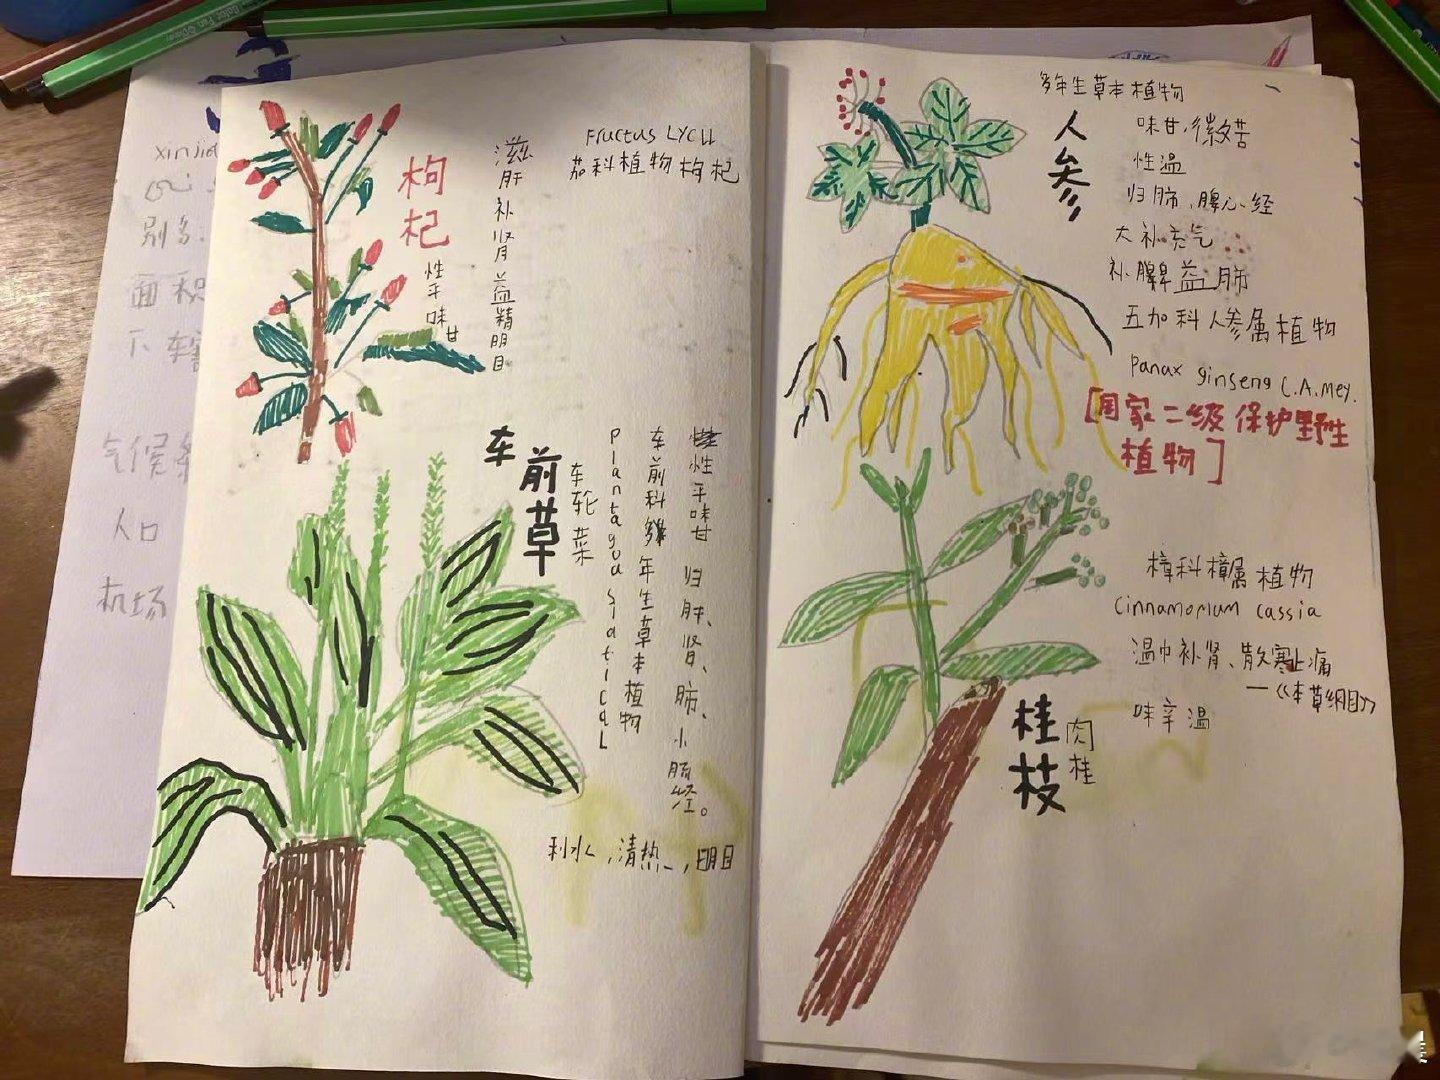 xinjia
别名.
面积
下辖
气候
人口
机场
枸杞
性平味甘
滋肝补肾益精明目
Fructus LYCII
茄科植物枸杞
车前草
车轮菜
Plantagoa SiaticaL
车前科多年生草本植物
性平味甘 归肝、肾、肺、小肠经。
利水,清热,明目
多年生草本植物
人参
味甘,微苦
性温
归肺、脾心经
大补元气
补脾益肺
五加科人参属植物
Panax ginseng C.A.Mey.
[国家二级保护野生
植物]
樟科樟属植物
Cinnamomum cassia
温中补肾、散寒止痛
—《本草纲目》
味辛温
桂枝
肉桂